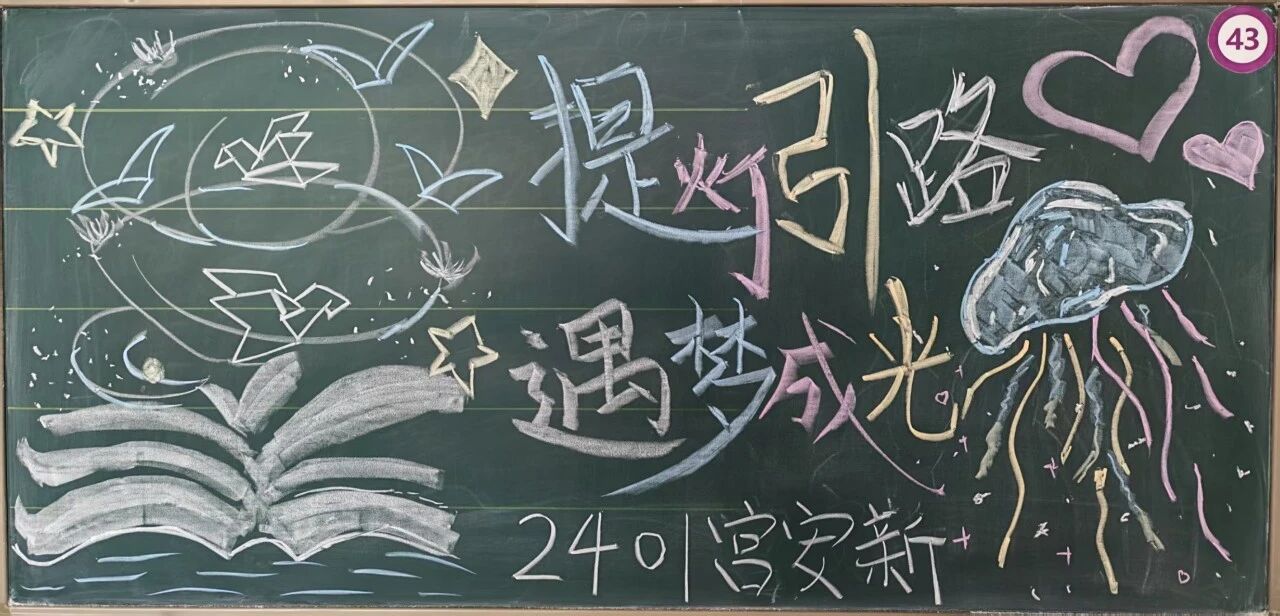 43
提灯引路
遇梦成光
2401宫安新